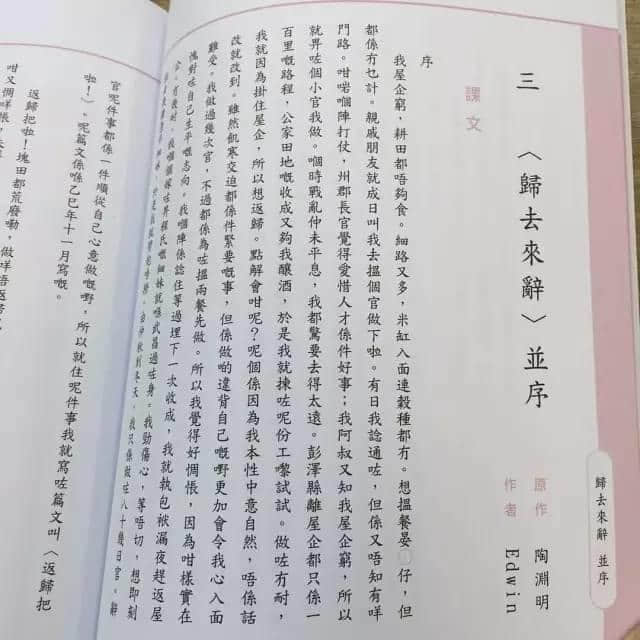 三 〈歸去來辭〉並序
原作 陶淵明
作者 Edwin
課文
序
我屋企窮，耕田都唔夠食。細路又多，米缸入面連穀種都冇。想搵餐晏仔，但
都係冇乜計。親戚朋友就成日叫我去搵個官做下啦。有日我諗通咗，但係又唔知有咩
門路。咁啱嗰陣打仗，州郡長官覺得愛惜人才係件好事；我阿叔又知我屋企窮，所以
就畀咗個小官我做。嗰時戰亂仲未平息，我都驚要去得太遠。彭澤縣離屋企都只係一
百里嘅路程，公家田地嘅收成又夠我釀酒，於是我就揀咗呢份工嚟試試。做咗冇耐，
我就因為掛住屋企，所以想返歸。點解會咁呢？呢個係因為我本性中意自然，唔係話
改就改到。雖然飢寒交迫都係件緊要嘅事，但係做啲違背自己嘅嘢更加會令我心入面
難受。我做過幾次官，不過都係為咗搵兩餐先做。所以我覺得好惆悵，因為咁樣實在
愧對咗自己生平嘅志向。我嗰陣係諗住等過埋下一次收成，我就執包袱漏夜趕返屋
企。有幾時，我嗰個嫁咗畀程氏嘅細妹就喺武昌過咗身。我勁傷心，等唔切，想即刻
由仲秋到冬天，我只係做咗八十幾日官。辭
官呢件事都係一件順從自己心意做嘅嘢，所以就住呢件事我就寫咗篇文叫〈返歸把
啦！〉。呢篇文係喺乙巳年十一月寫嘅。
返歸把啦！塊田都荒廢嘞，做咩唔返歸
咁又惆悵
歸去來辭 並序